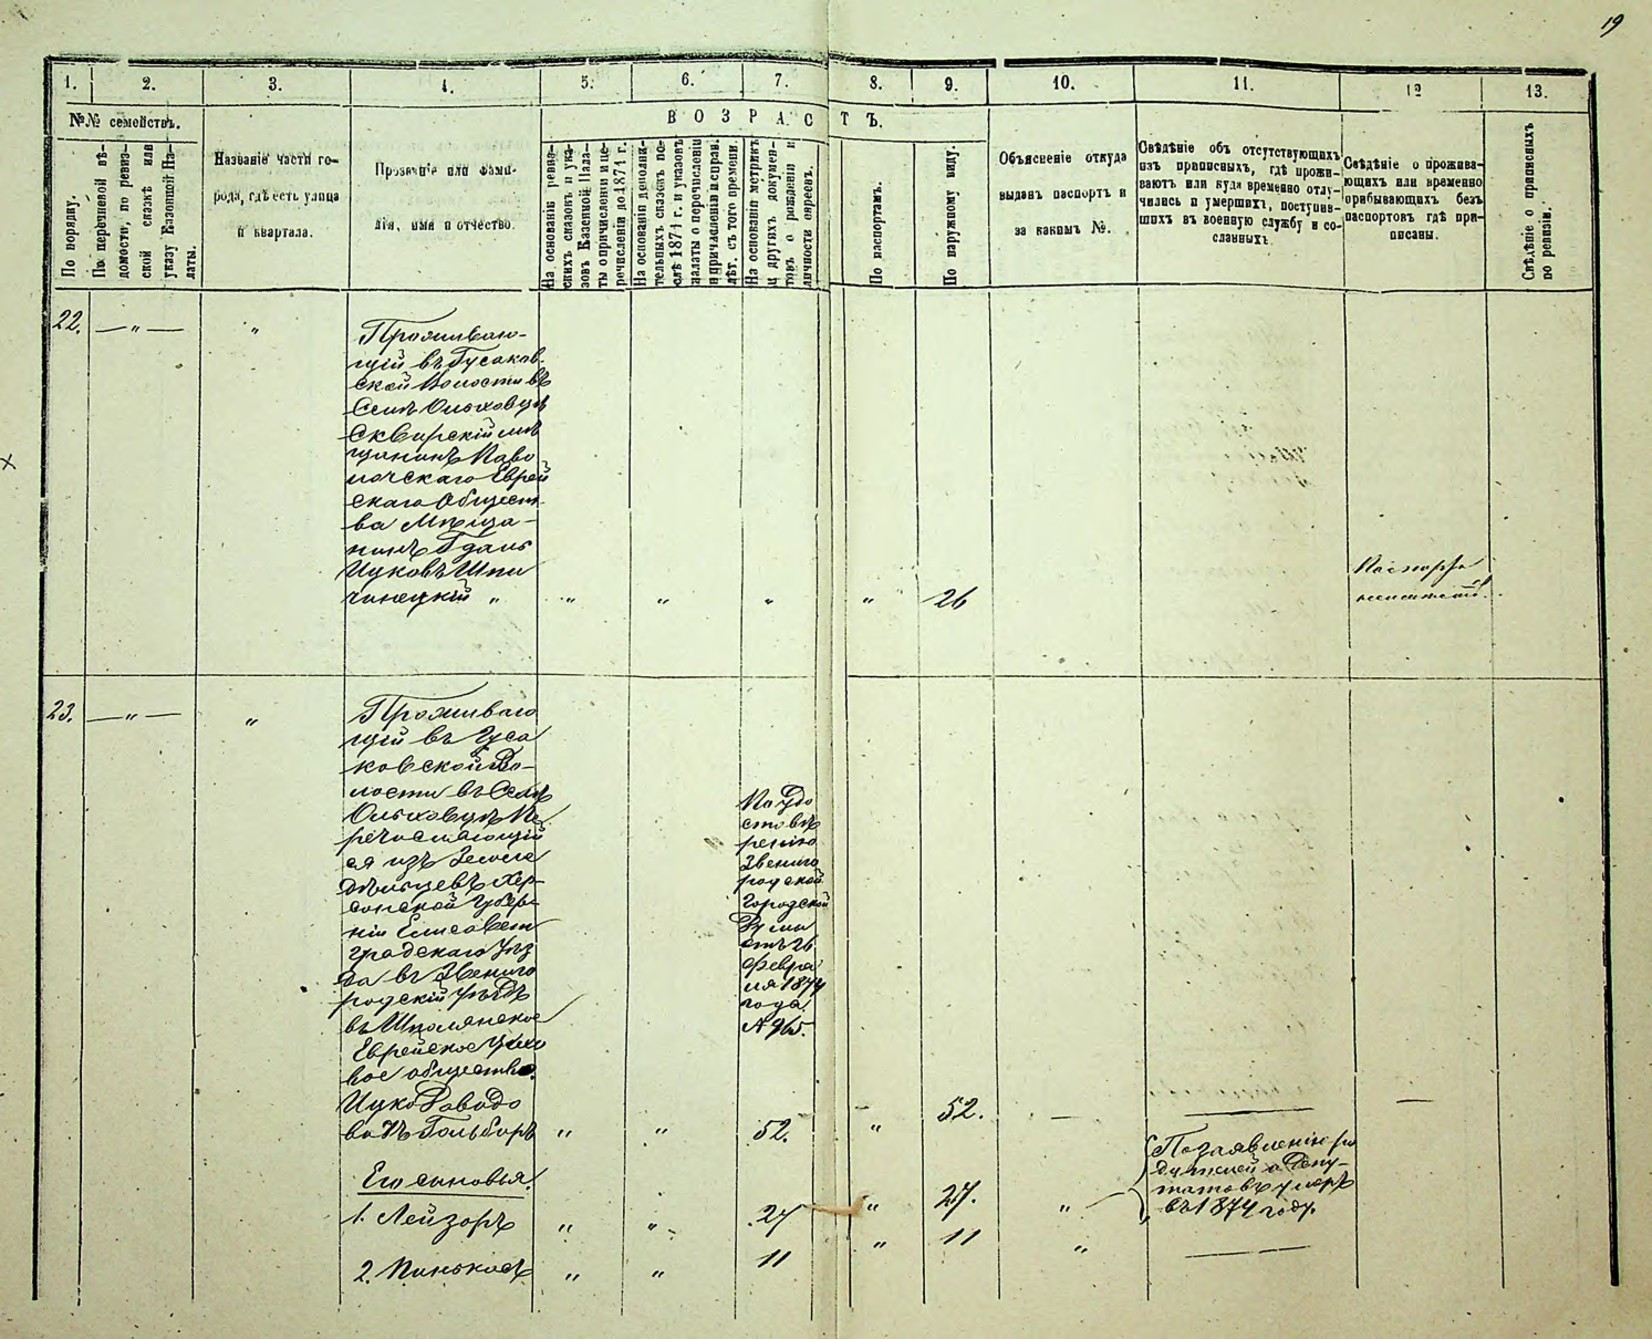 19
1. 2. 3. 4. 5. 6. 7. 8. 9. 10. 11. 12 13.
№№ семействъ.
В О З Р А С Т Ъ.
По порядку.
По перечневой вѣ-
домости, по ревиз-
ской сказкѣ или
указу Казенной Па-
латы.
Названіе части го-
рода, гдѣ есть улица
и квартала.
Прозваніе или фами-
лія, имя и отчество.
На основаніи ревиз-
скихъ сказокъ и ука-
зовъ Казенной Пала-
ты о причисленіи и пе-
речисленіи до 1874 г.
На основаніи дополни-
тельныхъ сказокъ по-
слѣ 1874 г. и указовъ
палаты о перечисленіи
и причисленіи исправ.
лѣт. съ того времени.
На основаніи метрикъ
и другихъ докумен-
товъ о рожденіи и
личности евреевъ.
По паспортамъ.
По наружному виду.
Объясненіе откуда
выданъ паспортъ и
за какимъ №.
Свѣдѣніе объ отсутствующихъ
изъ приписныхъ, гдѣ прожи-
ваютъ или куда временно отлу-
чились и умершихъ, поступив-
шихъ въ военную службу и со-
сланныхъ.
Свѣдѣніе о прожива-
ющихъ или временно
прибывающихъ безъ
паспортовъ гдѣ при-
писаны.
Свѣдѣніе о приписныхъ
по ревизіи.
22. — „ — „
Проживаю-
щій въ Гусаков-
ской Волости въ
Селѣ Ольховцѣ
Сквирскій мѣ
щанинъ Паво
лочскаго Еврей
скаго Общест-
ва Мѣща-
нинъ
Ицковъ Шпи
чинецкій „ „ „ „ „ 26
Паспорта
неимѣетъ.
23. — „ — „
Проживаю
щій въ Гуса
ковской Во-
лости въ Селѣ
Ольховцѣ Пе
речисляющій
ся изъ Земле
дѣльцевъ Хер-
сонской Губер-
ніи Елисавет
градскаго Уѣз
да въ Звениго
родскій Уѣздъ
въ Шполянское
Еврейское
вое общество.
Ицко
въ Гольбортъ „ „ 52. „ 52. —
По Удо
стовѣ
ренію
Звениго
родской
Городской
Думы
отъ 26
Февра
ля 1874
года
№ 965.
Его сыновья.
1. Лейзоръ „ „ 27 „ 27. „
По заявленію ро
дителей и Депу-
татовъ умеръ
въ 1874 году.
2. Пинькасъ „ „ 11 „ 11 „